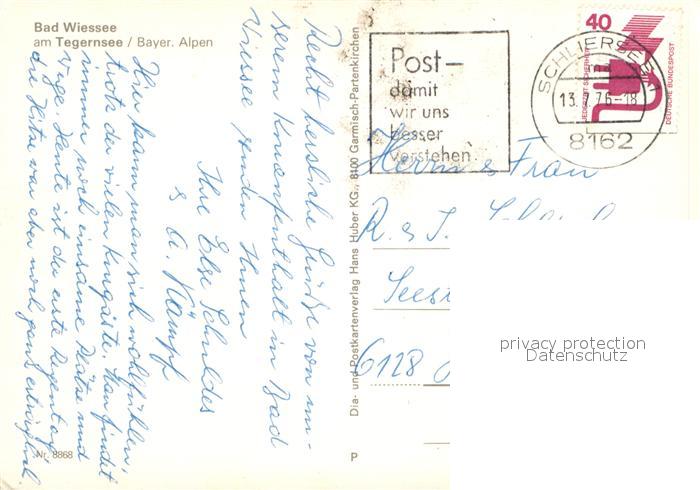 Bad Wiessee
am Tegernsee / Bayer. Alpen
Recht herzliche Grüße von un-
serem Kuraufenthalt in Bad
Wiessee senden Ihnen
Ihre Else Schuldes
& A. Kämpf
Hier kann man sich wohlfühlen,
trotz der vielen Kurgäste. Man findet
immer noch einsame Plätze und
Wege. Heute ist der erste Regentag,
die Hitze war aber noch ganz erträglich.
Nr. 8868
Dia- und Postkartenverlag Hans Huber KG., 8100 Garmisch-Partenkirchen
P
Post –
damit
wir uns
besser
verstehen
SCHLIERSEE 1
13. 76-18
8162
40
JEDERZEIT SICHERHEIT
DEUTSCHE BUNDESPOST
Herrn & Frau
R. & I.
Seest
6128
privacy protection
Datenschutz